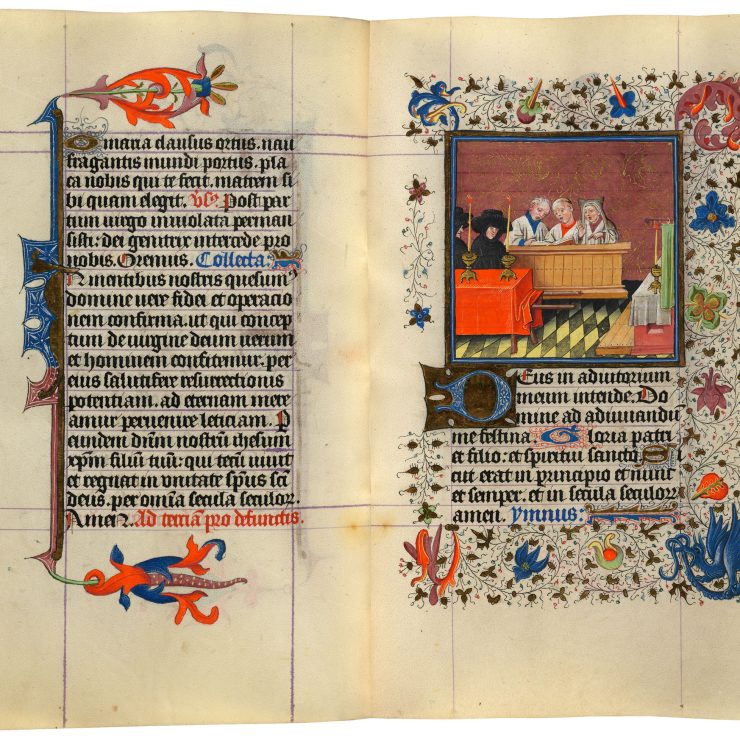 O maria clausus ortus. nau
fragantis mundi portus. pla
ca nobis qui te fecit. matrem si
bi quam elegit. Vsꝰ. Post par
tum uirgo inuiolata perman
sisti: dei genitrix intercede pro
nobis. Oremus. Collecta:
In mentibus nostris quesum̅
domine uere fidei et operacio
nem confirma. ut qui concep
tum de uirgine deum uerum
et hominem confitemur. per
eius salutifere resurrectionis
potentiam. ad eternam mere
amur peruenire leticiam. P
eundem dn̅m nostru̅ ihesum
xp̅m filiu̅ tuu̅: qui tecu̅ uiuit
et regnat in unitate sp̅us sc̅i
deus. per om̅ia secula seculoꝝ.
Amen. Ad tercia̅ pro defunctis.
Deus in adiutorium
meum intende. Do
mine ad adiuuandu̅
me festina Gloria patri
et filio: et spiritui sancto. Si
cut erat in principio et nunc
et semper. et in secula seculoꝝ
amen. ymnus: